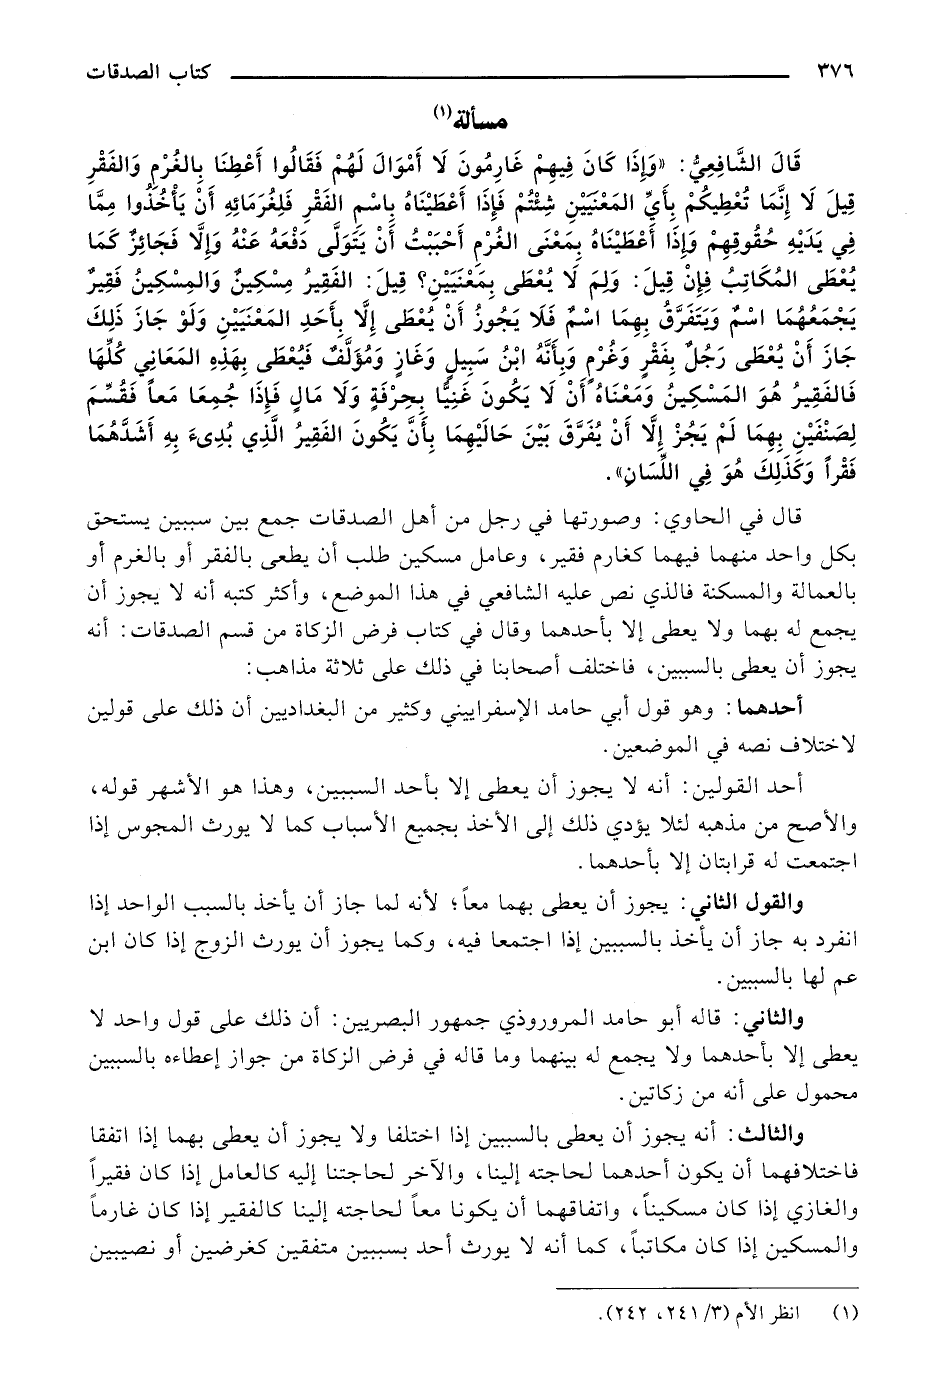 ٣٧٦ كتاب الصدقات
مسألة(١)
قَالَ الشَّافِعِيُّ: «وَإِذَا كَانَ فِيهِمْ غَارِمُونَ لَا أَمْوَالَ لَهُمْ فَقَالُوا أَعْطِنَا بِالغُرْمِ وَالفَقْرِ
قِيلَ لَا إِنَّمَا نُعْطِيكُمْ بِأَيِّ المَعْنَيَيْنِ شِئْتُمْ فَإِذَا أَعْطَيْنَاهُ بِاسْمِ الفَقْرِ فَلِغُرَمَائِهِ أَنْ يَأْخُذُوا مِمَّا
فِي يَدَيْهِ حُقُوقِهِمْ وَإِذَا أَعْطَيْنَاهُ بِمَعْنَى الغُرْمِ أَحْبَبْتُ أَنْ يَتَوَلَّى دَفْعَهُ عَنْهُ وَإِلَّا فَجَائِزٌ كَمَا
يُعْطَى المُكَاتِبُ فَإِنْ قِيلَ: وَلِمَ لَا يُعْطَى بِمَعْنَيَيْنِ؟ قِيلَ: الفَقِيرُ مِسْكِينٌ وَالمِسْكِينُ فَقِيرٌ
يَجْمَعُهُمَا اسْمٌ وَيَتَفَرَّقُ بِهِمَا اسْمٌ فَلَا يَجُوزُ أَنْ يُعْطَى إِلَّا بِأَحَدِ المَعْنَيَيْنِ وَلَوْ جَازَ ذَلِكَ
جَازَ أَنْ يُعْطَى رَجُلٌ بِفَقْرٍ وَغُرْمٍ وَبِأَنَّهُ ابْنُ سَبِيلٍ وَغَازٍ وَمُؤَلَّفٌ فَيُعْطَى بِهَذِهِ المَعَانِي كُلِّهَا
فَالفَقِيرُ هُوَ المَسْكِينُ وَمَعْنَاهُ أَنْ لَا يَكُونَ غَنِيًّا بِحِرْفَةٍ وَلَا مَالٍ فَإِذَا جُمِعَا مَعاً فَقُسِّمَ
لِصَنْفَيْنِ بِهِمَا لَمْ يَجُزْ إِلَّا أَنْ يُفَرَّقَ بَيْنَ حَالَيْهِمَا بِأَنَّ يَكُونَ الفَقِيرُ الَّذِي بُدِىءَ بِهِ أَشَدَّهُمَا
فَقْراً وَكَذَلِكَ هُوَ فِي اللِّسَانِ».
قال في الحاوي: وصورتها في رجل من أهل الصدقات جمع بين سببين يستحق
بكل واحد منهما فيهما كغارم فقير، وعامل مسكين طلب أن يطعى بالفقر أو بالغرم أو
بالعمالة والمسكنة فالذي نص عليه الشافعي في هذا الموضع، وأكثر كتبه أنه لا يجوز أن
يجمع له بهما ولا يعطى إلا بأحدهما وقال في كتاب فرض الزكاة من قسم الصدقات: أنه
يجوز أن يعطى بالسببين، فاختلف أصحابنا في ذلك على ثلاثة مذاهب:
أحدهما: وهو قول أبي حامد الإسفراييني وكثير من البغداديين أن ذلك على قولين
لاختلاف نصه في الموضعين.
أحد القولين: أنه لا يجوز أن يعطى إلا بأحد السببين، وهذا هو الأشهر قوله،
والأصح من مذهبه لئلا يؤدي ذلك إلى الأخذ بجميع الأسباب كما لا يورث المجوس إذا
اجتمعت له قرابتان إلا بأحدهما.
والقول الثاني: يجوز أن يعطى بهما معاً؛ لأنه لما جاز أن يأخذ بالسبب الواحد إذا
انفرد به جاز أن يأخذ بالسببين إذا اجتمعا فيه، وكما يجوز أن يورث الزوج إذا كان ابن
عم لها بالسببين.
والثاني: قاله أبو حامد المروروذي جمهور البصريين: أن ذلك على قول واحد لا
يعطى إلا بأحدهما ولا يجمع له بينهما وما قاله في فرض الزكاة من جواز إعطاءه بالسببين
محمول على أنه من زكاتين.
والثالث: أنه يجوز أن يعطى بالسببين إذا اختلفا ولا يجوز أن يعطى بهما إذا اتفقا
فاختلافهما أن يكون أحدهما لحاجته إلينا، والآخر لحاجتنا إليه كالعامل إذا كان فقيراً
والغازي إذا كان مسكيناً، واتفاقهما أن يكونا معاً لحاجته إلينا كالفقير إذا كان غارماً
والمسكين إذا كان مكاتباً، كما أنه لا يورث أحد بسببين متفقين كغرضين أو نصيبين
(١) انظر الأم (٣/ ٢٤١، ٢٤٢).